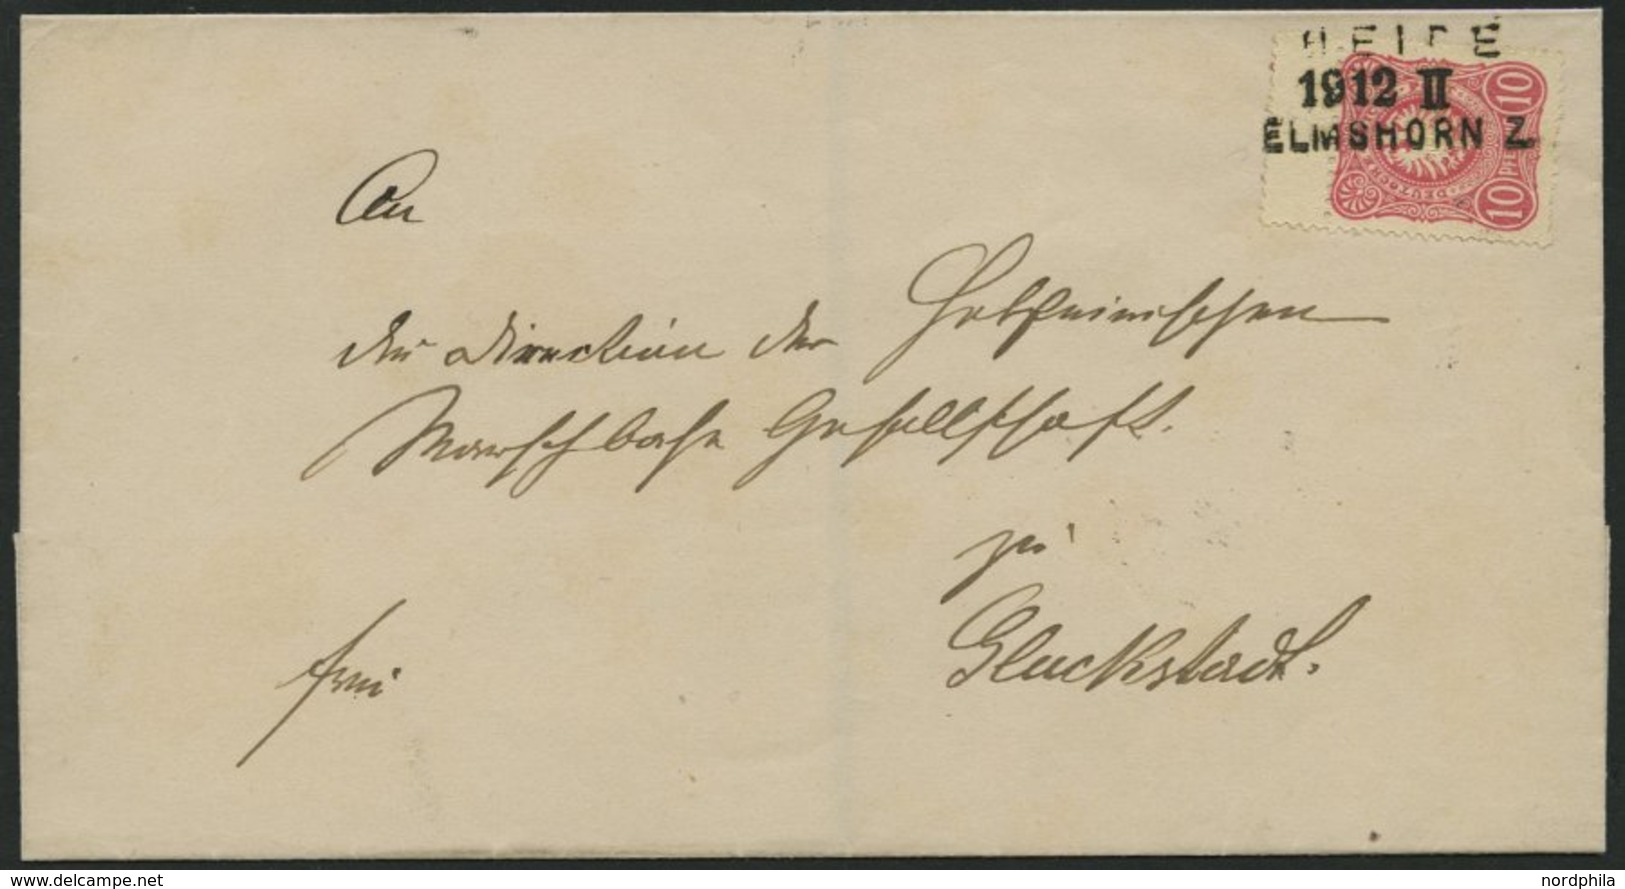 HEIDE
1912 II
ELMSHORN Z.
10
10 PFE
DEUTSCHE
An
die Direction der Holsteinischen
Marschbahn Gesellschaft.
zu
Gluckstadt.
frei
www.delcampe.net
nordphila